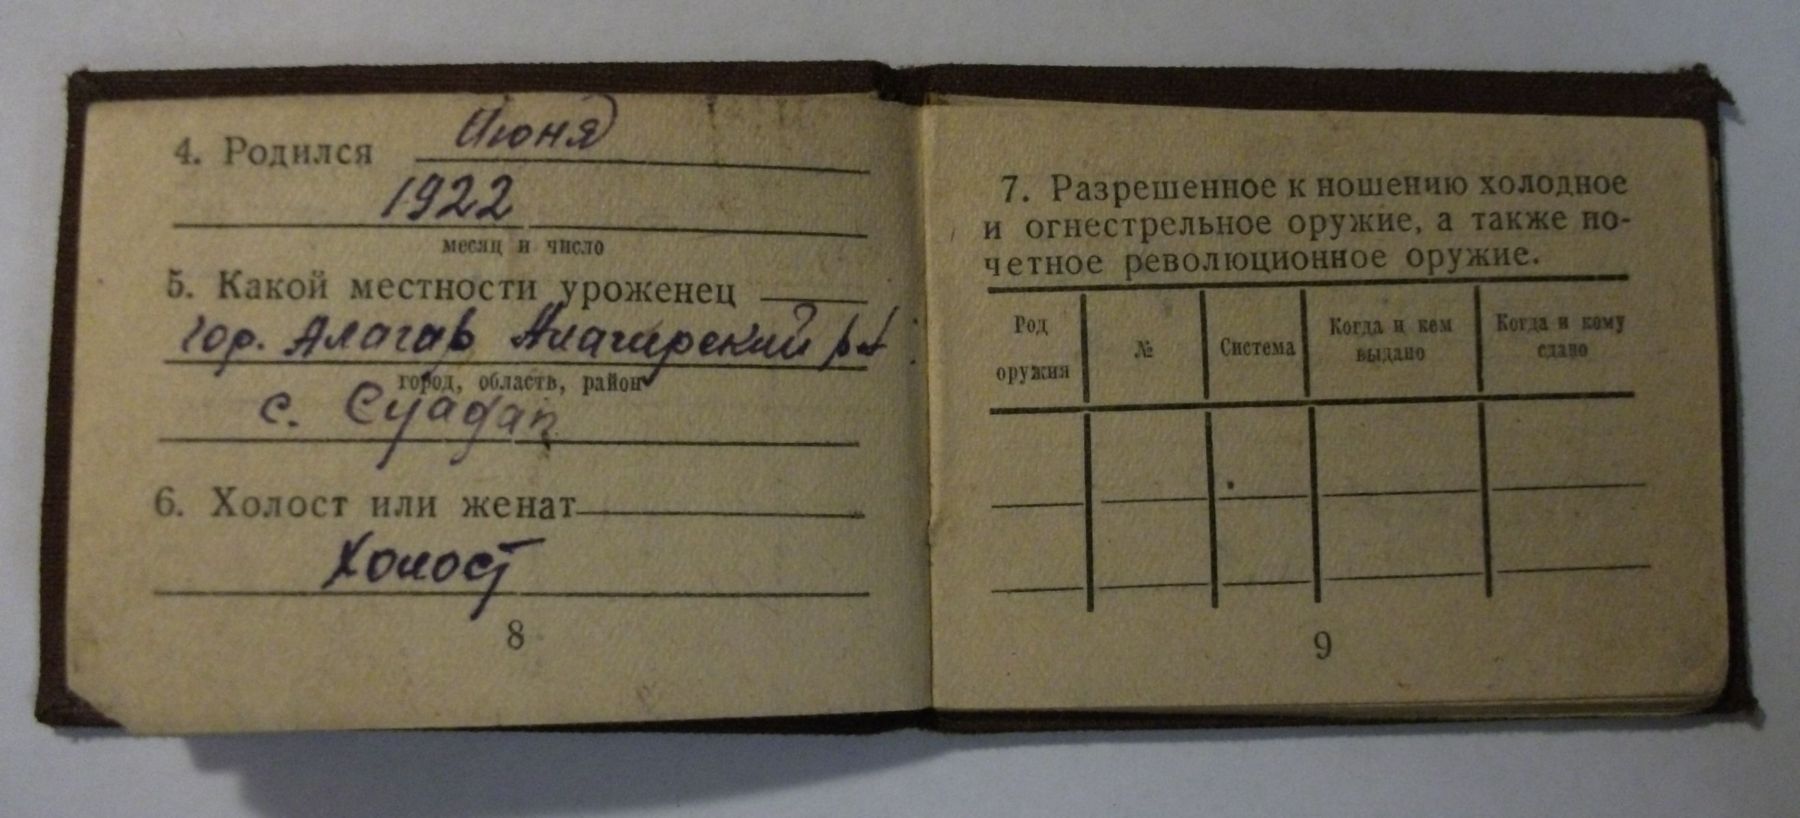 4. Родился Июня
1922
месяц и число
5. Какой местности уроженец
гор. Алагар Алагирский р-н
город, область, район
с. Суадаг
6. Холост или женат
Холост
8
7. Разрешенное к ношению холодное
и огнестрельное оружие, а также по-
четное революционное оружие.
Род оружия
№
Система
Когда и кем выдано
Когда и кому сдано
9